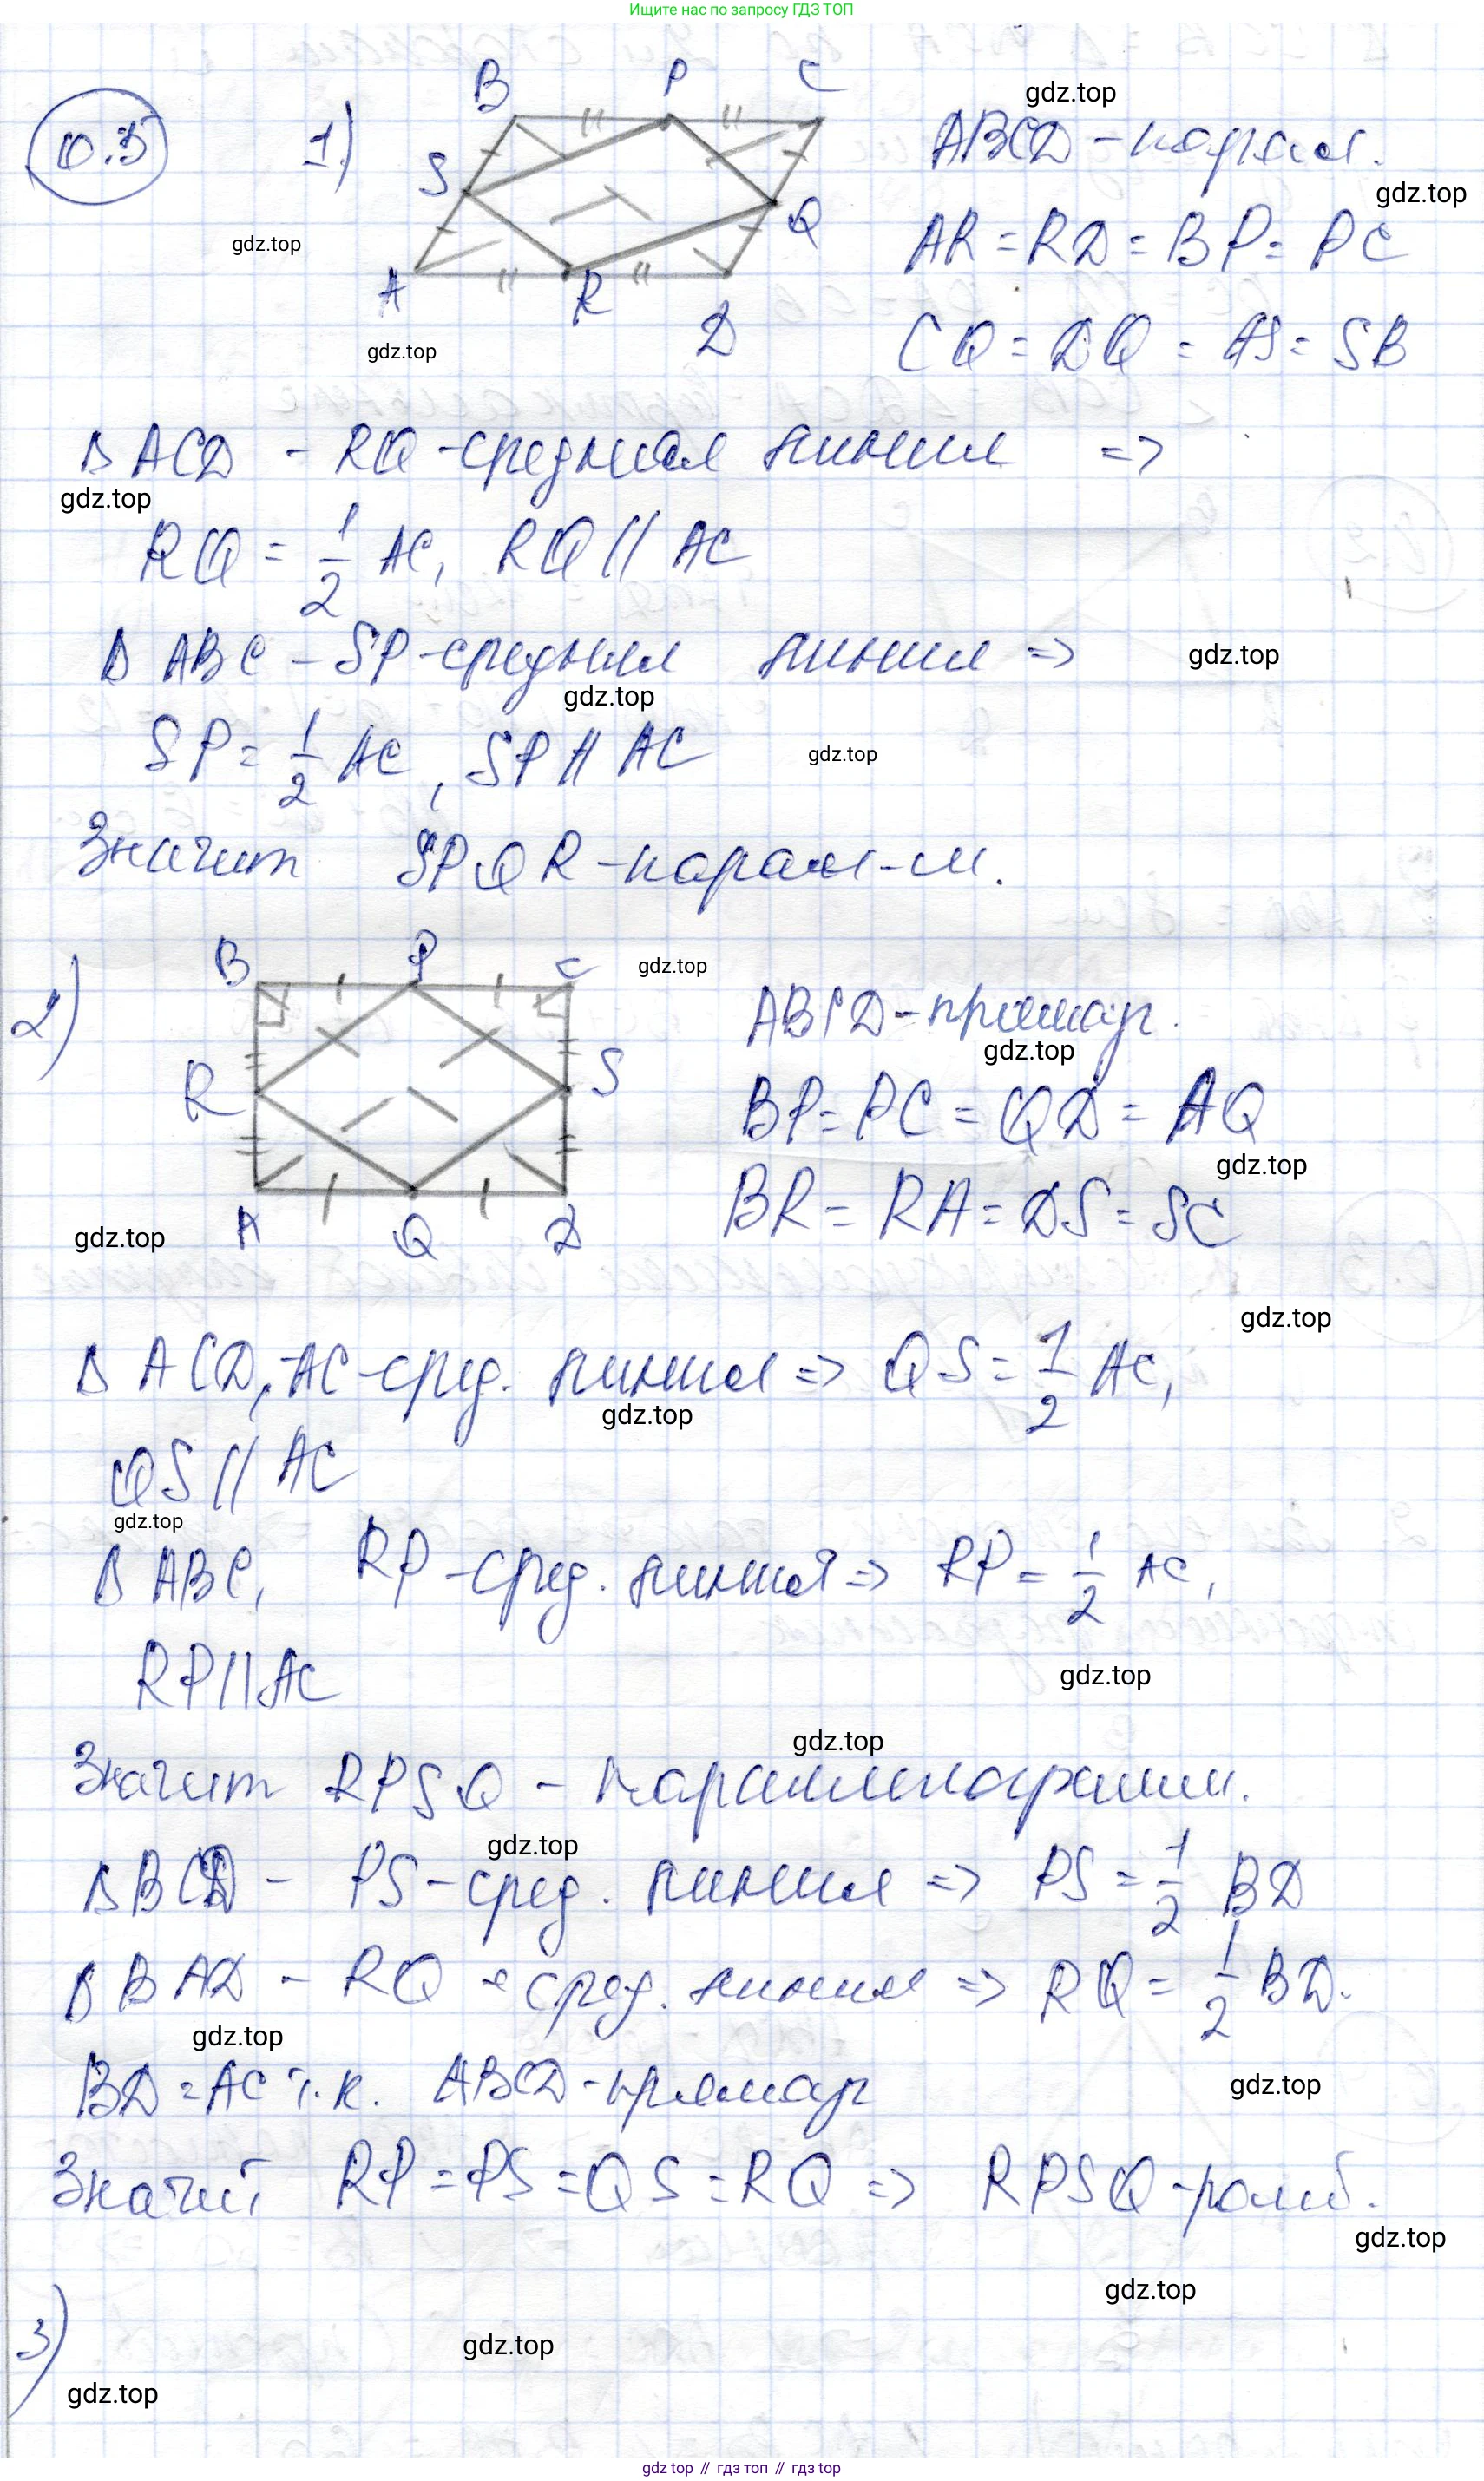 Ищите нас по запросу ГДЗ ТОП
0.3
1)
B P C
S Q
A R D
ABCD - паралл.
AR = RD = BP = PC
CQ = DQ = AS = SB
gdz.top
gdz.top
gdz.top
gdz.top
Δ ACD - RQ - средняя линия =>
gdz.top
RQ = 1/2 AC, RQ // AC
Δ ABC - SP - средняя линия =>
gdz.top
gdz.top
SP = 1/2 AC, SP // AC
gdz.top
Значит SPQR - паралл-м.
2)
B P C
R S
A Q D
gdz.top
ABCD - прямоуг.
gdz.top
BP = PC = QD = AQ
gdz.top
BR = RA = DS = SC
gdz.top
gdz.top
Δ ACD, AC - сред. линия => QS = 1/2 AC,
gdz.top
QS // AC
gdz.top
Δ ABC, RP - сред. линия => RP = 1/2 AC,
RP // AC
gdz.top
gdz.top
Значит RPSQ - параллелограмм.
gdz.top
Δ BCD - PS - сред. линия => PS = 1/2 BD
Δ BAD - RQ - сред. линия => RQ = 1/2 BD.
gdz.top
BD = AC т.к. ABCD - прямоуг
gdz.top
Значит RP = PS = QS = RQ => RPSQ - ромб.
gdz.top
gdz.top
3)
gdz.top
gdz.top
gdz top // гдз топ // гдз top